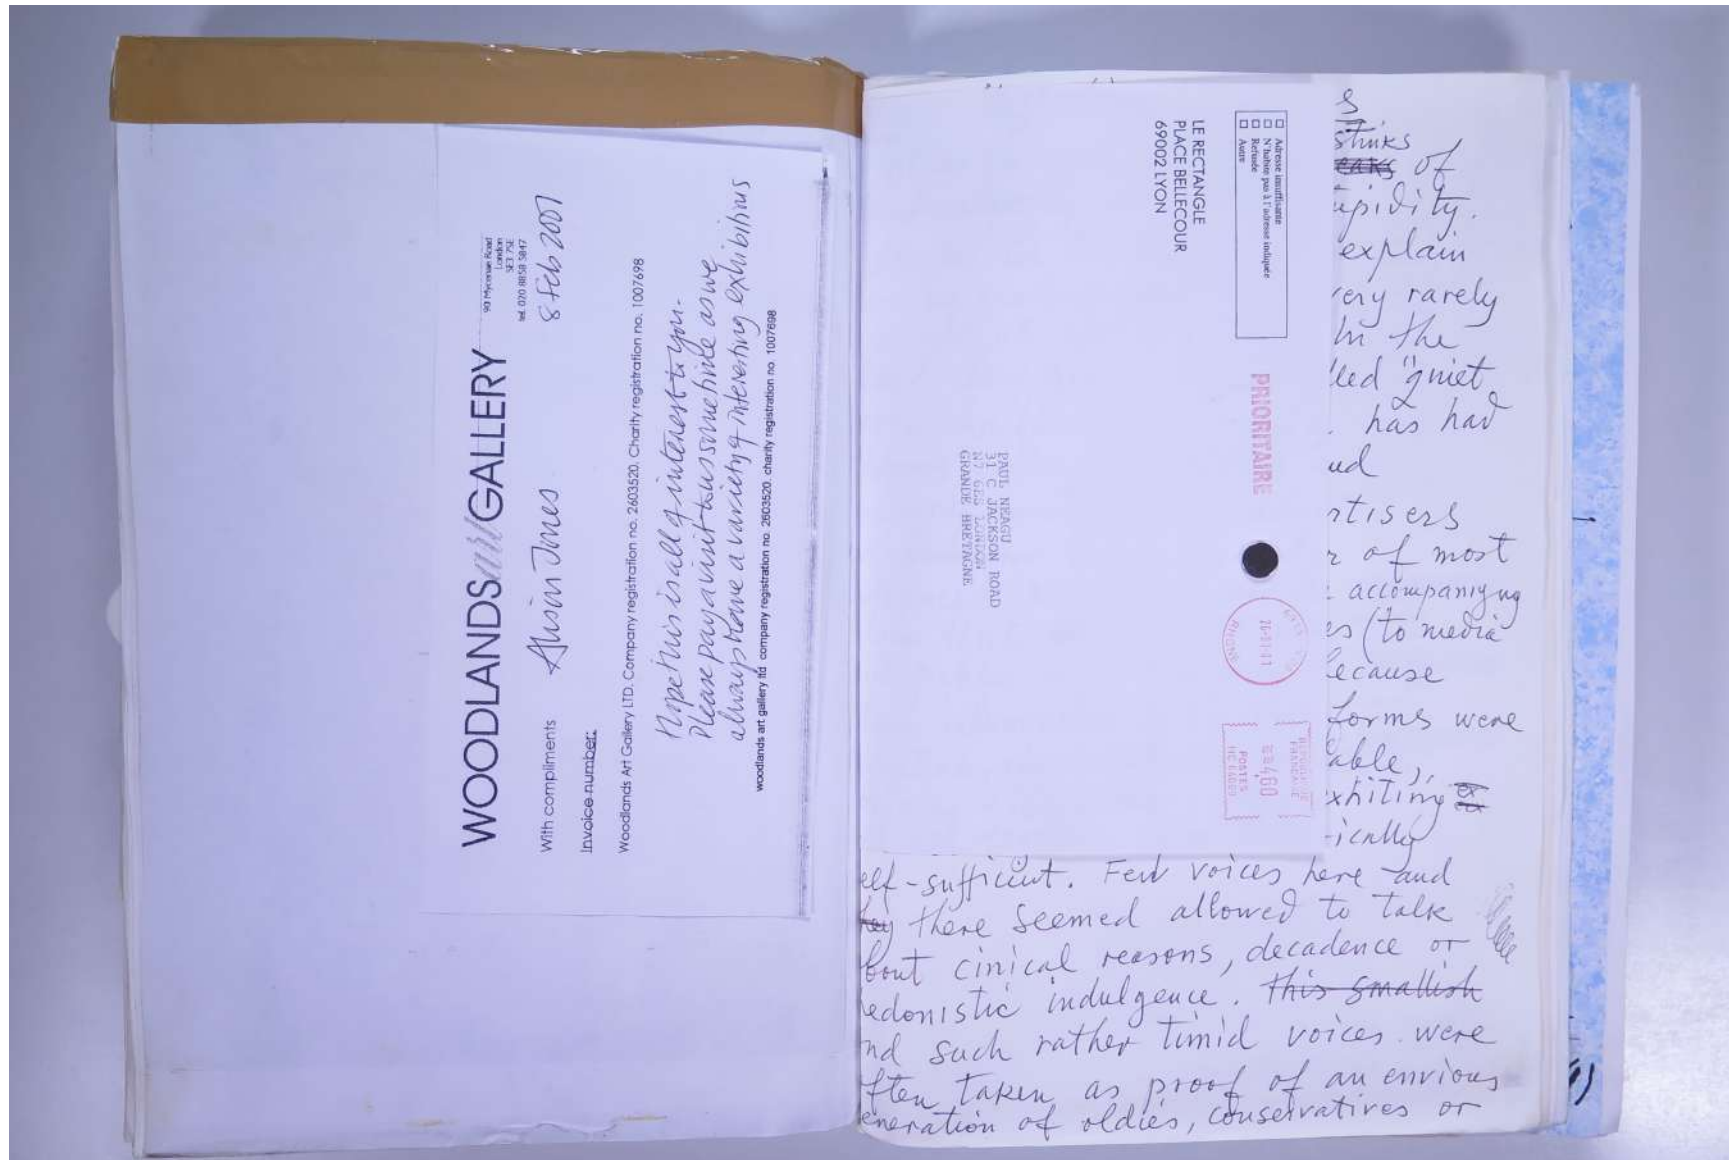 WOODLANDS art GALLERY
90 Mycenae Road
London
SE3 7SE
tel. 020 8858 5847
With compliments Alison Jones 8 Feb 2001
Invoice number:
Woodlands Art Gallery LTD. Company registration no. 2603520. Charity registration no. 1007698
Hope this is all of interest to you.
Please pay a visit to us sometime as we
always have a variety of interesting exhibitions
woodlands art gallery ltd company registration no. 2603520. charity registration no. 1007698
Adresse insuffisante
N'habite pas à l'adresse indiquée
Refusée
Autre
LE RECTANGLE
PLACE BELLECOUR
69002 LYON
PRIORITAIRE
PAUL NEAGU
31 C JACKSON ROAD
N7 6ES LONDON
GRANDE BRETAGNE
RHONE
REPUBLIQUE
FRANCAISE
POSTES
stinks
eaks of
upidity.
explain
ery rarely
In the
lled "quiet
. has had
ud
rtisers
r of most
accompanying
es (to media
ecause
forms were
able,
xhiting ex
ically
elf-sufficient. Few voices here and
they there seemed allowed to talk
bout cinical reasons, decadence or
edonistic indulgence. this smallish
nd such rather timid voices were
ften taken as proof of an envious
eneration of oldies, conservatives or